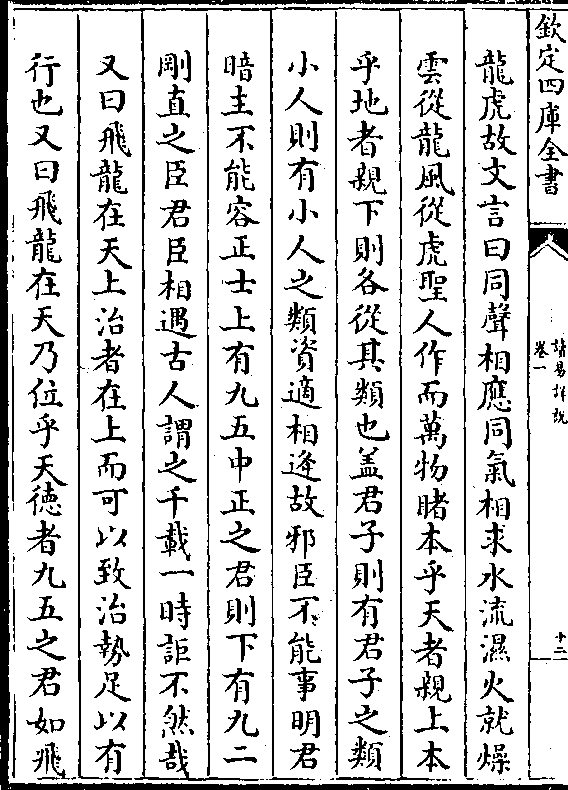 欽定四庫全書
卷一
讀易詳說
十二
龍虎故文言曰同聲相應同氣相求水流濕火就燥
雲從龍風從虎聖人作而萬物睹本乎天者親上本
乎地者親下則各從其類也盖君子則有君子之類
小人則有小人之類資適相逢故邪臣不能事明君
暗主不能容正士上有九五中正之君則下有九二
剛直之臣君臣相遇古人謂之千載一時詎不然哉
又曰飛龍在天上治者在上而可以致治勢足以有
行也又曰飛龍在天乃位乎天德者九五之君如飛